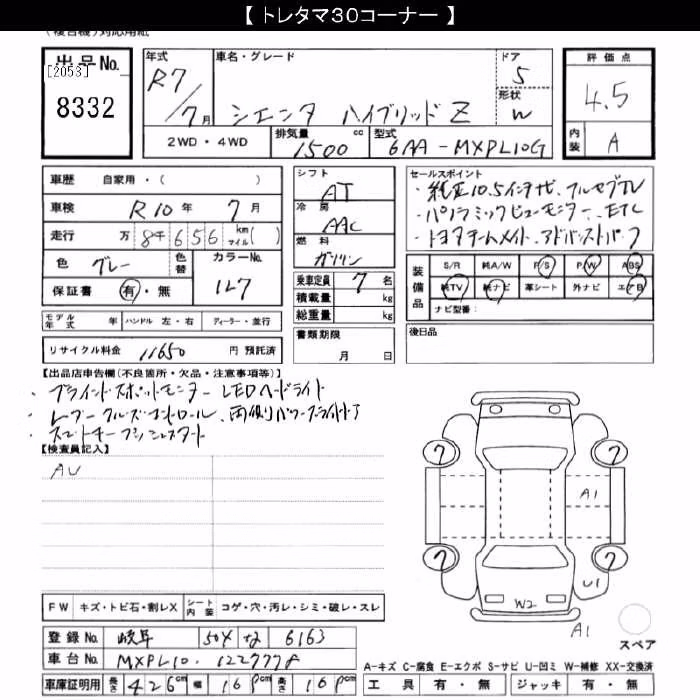 【 トレタマ30コーナー 】
(複合機)対応用紙
出品No.
[2053]
8332
年式
R7/7月
車名・グレード
シエンタ ハイブリッド Z
ドア
5
形状
W
評価点
4.5
内装
A
2WD・4WD
排気量
1500 cc
型式
6AA-MXPL10G
車歴 自家用・( )
車検 R10年 7月
走行 万 8千656 km マイル( )
色 グレー
色替
カラーNo.
1L7
保証書 有・無
シフト
AT
冷房
AAC
燃料
ガソリン
乗車定員 7 名
積載量 kg
総重量 kg
書類期限
月 日
セールスポイント
・純正10.5インチナビ、フルセグTV
・パノラミックビューモニター、ETC
・トヨタチームメイト、アドバンストパーク
装備品
S/R 純A/W P/S P/W ABS
純TV 純ナビ 革シート 外ナビ エアB
ナビ型番:
後日品
モデル年式 年 ハンドル 左・右 ディーラー・並行
リサイクル料金 11650 円 預託済
【出品店申告欄(不良箇所・欠品・注意事項等)】
・ブラインドスポットモニター LEDヘッドライト
・レーダークルーズコントロール、両側パワースライドドア
・スマートキー プッシュスタート
【検査員記入】
AU
7
7
7
7
A1
U1
W2
A1
スペア
FW キズ・トビ石・割レX シート内装 コゲ・穴・汚レ・シミ・破レ・スレ
登録No. 岐阜 504 な 6163
車台No. MXPL10-1227778
車庫証明用 長さ 426cm 幅 169cm 高さ 169cm
A-キズ C-腐食 E-エクボ S-サビ U-凹ミ W-補修 XX-交換済
工具 有・無 ジャッキ 有・無